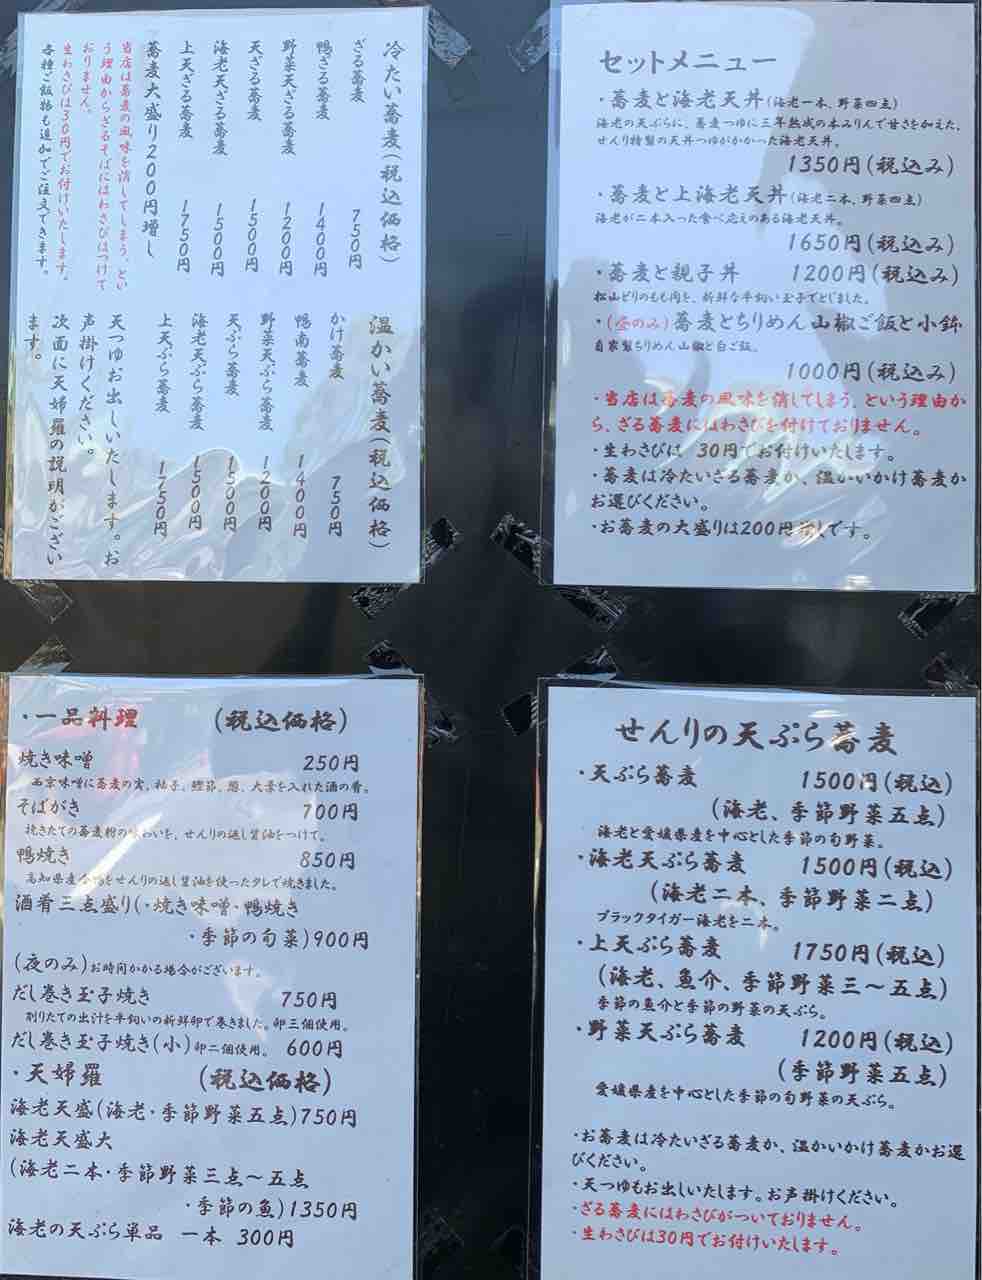 冷たい蕎麦(税込価格)
ざる蕎麦 750円
鴨ざる蕎麦 1400円
野菜天ざる蕎麦 1200円
天ざる蕎麦 1500円
海老天ざる蕎麦 1500円
上天ざる蕎麦 1750円
蕎麦大盛り200円増し
当店は蕎麦の風味を消してしまう、とい
う理由からざるそばにはわさびはつけて
おりません。
生わさびは30円でお付けいたします。
各種ご飯物も追加でご注文できます。
温かい蕎麦(税込価格)
かけ蕎麦 750円
鴨南蕎麦 1400円
野菜天ぷら蕎麦 1200円
天ぷら蕎麦 1500円
海老天ぷら蕎麦 1500円
上天ぷら蕎麦 1750円
天つゆお出しいたします。お
声掛けください。
次面に天婦羅の説明がござい
ます。
セットメニュー
・蕎麦と海老天丼(海老一本、野菜四点)
海老の天ぷらに、蕎麦つゆに三年熟成の本みりんで甘さを加えた、
せんり特製の天丼つゆがかかった海老天丼。
1350円(税込み)
・蕎麦と上海老天丼(海老二本、野菜四点)
海老が二本入った食べ応えのある海老天丼。
1650円(税込み)
・蕎麦と親子丼 1200円(税込み)
松山どりのもも肉を、新鮮な平飼い玉子でとじました。
・(昼のみ)蕎麦とちりめん山椒ご飯と小鉢
自家製ちりめん山椒と白ご飯。
1000円(税込み)
・当店は蕎麦の風味を消してしまう、という理由か
ら、ざる蕎麦にはわさびを付けておりません。
・生わさびは 30円でお付けいたします。
・蕎麦は冷たいざる蕎麦か、温かいかけ蕎麦か
お選びください。
・お蕎麦の大盛りは200円増しです。
・一品料理 (税込価格)
焼き味噌 250円
西京味噌に蕎麦の実、柚子、鰹節、葱、大葉を入れた酒の肴。
そばがき 700円
挽きたての蕎麦粉の味わいを、せんりの返し醤油をつけて。
鴨焼き 850円
高知県産合鴨をせんりの返し醤油を使ったタレで焼きました。
酒肴三点盛り(・焼き味噌・鴨焼き
・季節の旬菜)900円
(夜のみ)お時間かかる場合がございます。
だし巻き玉子焼き 750円
削りたての出汁を平飼いの新鮮卵で巻きました。卵三個使用。
だし巻き玉子焼き(小)卵二個使用。 600円
・天婦羅 (税込価格)
海老天盛(海老・季節野菜五点)750円
海老天盛大
(海老二本・季節野菜三点～五点
・季節の魚)1350円
海老の天ぷら単品 一本 300円
せんりの天ぷら蕎麦
・天ぷら蕎麦 1500円(税込)
(海老、季節野菜五点)
海老と愛媛県産を中心とした季節の旬野菜。
・海老天ぷら蕎麦 1500円(税込)
(海老二本、季節野菜二点)
ブラックタイガー海老を二本。
・上天ぷら蕎麦 1750円(税込)
(海老、魚介、季節野菜三～五点)
季節の魚介と季節の野菜の天ぷら。
・野菜天ぷら蕎麦 1200円(税込)
(季節野菜五点)
愛媛県産を中心とした季節の旬野菜の天ぷら。
・お蕎麦は冷たいざる蕎麦か、温かいかけ蕎麦かお選
びください。
・天つゆもお出しいたします。お声掛けください。
・ざる蕎麦にはわさびがついておりません。
・生わさびは30円でお付けいたします。